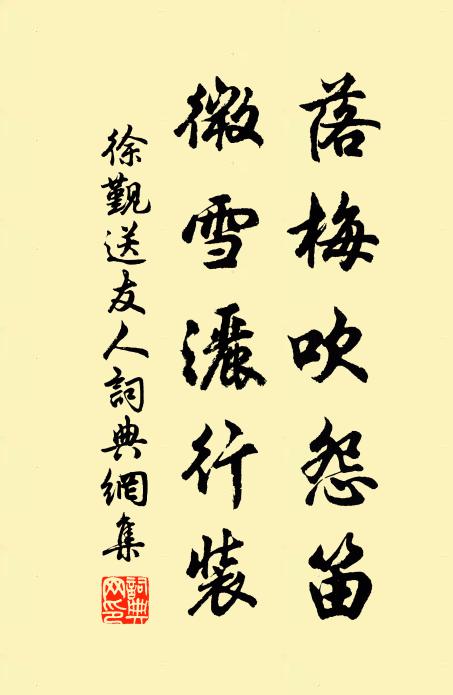 落梅吹怨笛
微雪灑行裝
徐觀送友人詞典網集
詞典网印